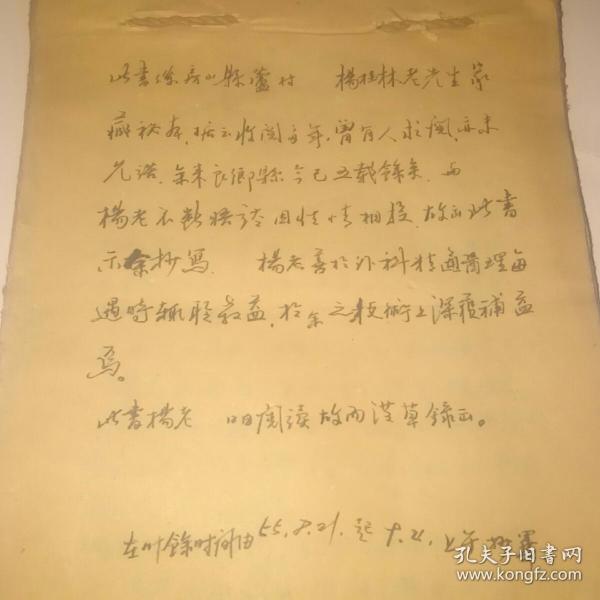 此書係房山縣蘆村 楊桂林老先生家
藏秘本,據云收閱多年,曾有人求閱,亦未
允諾,余來良鄉縣今已五載餘矣,与
楊老不斷接談因性情相投,故而此書
示余抄寫 楊老善於外科精通醫理每
遇時輒聆教益,於余之技術上深獲補益
焉。
此書楊老 日日閱讀故而潦草錄正。
在叶餘时间由55.8.21.起9.21.上午
孔夫子旧书网
www.kongfz.com